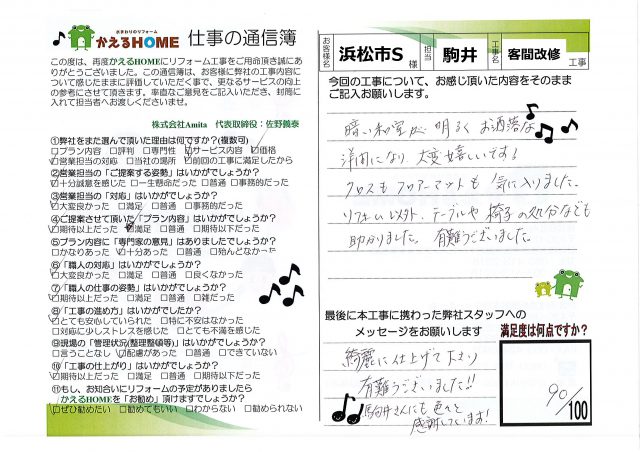 水まわりのリフォーム
かえるHOME 仕事の通信簿
この度は、再度かえるHOMEにリフォーム工事をご用命頂き誠にあ
りがとうございました。この通信簿は、お客様に弊社の工事内容に
ついて感じたままに評価していただく事で、更なるサービスの向上
の参考にさせて頂きます。率直なご意見をご記入いただき、封筒に
入れて担当者へお渡しくださいませ。
株式会社Amita 代表取締役:佐野義泰
①弊社をまた選んで頂いた理由は何ですか?(複数可)
□プラン内容 □評判 □専門性 ☑サービス内容 ☑価格
☑営業担当の対応 □当社の場所 ☑前回の工事に満足したから
②営業担当の「ご提案する姿勢」はいかがでしょうか?
☑十分誠意を感じた □一生懸命だった □普通 □事務的だった
③営業担当の「対応」はいかがでしょうか?
☑大変良かった □満足 □普通 □事務的だった
④ご提案させて頂いた「プラン内容」はいかがでしょうか?
☑期待以上だった □満足 □普通 □期待以下だった
⑤プラン内容に「専門家の意見」はありましたでしょうか?
□かなりあった ☑十分あった □普通 □殆んどなかった
⑥「職人の対応」はいかがでしょうか?
☑大変良かった □満足 □普通 □良くなかった
⑦「職人の仕事の姿勢」はいかがでしょうか?
☑期待以上だった □満足 □普通 □雑だった
⑧「工事の進め方」はいかがでしたか?
☑とても安心していられた □特に不安はなかった
□対応に少しストレスを感じた □とても不満を感じた
⑨現場の「管理状況(整理整頓等)」はいかがでしょうか?
□言うことなし ☑配慮があった □普通 □できていない
⑩「工事の仕上がり」はいかがでしょうか?
☑期待以上だった □満足 □普通 □期待以下だった
⑪もし、お知合いにリフォームの予定がありましたら
かえるHOMEを「お勧め」頂けますでしょうか?
☑ぜひ勧めたい □勧めてもいい □わからない □勧められない
お客様名 浜松市S 様 担当 駒井 工事名 客間改修 工事
今回の工事について、お感じ頂いた内容をそのまま
ご記入お願いします。
暗い和室が 明るく お洒落な
洋間になり 大変嬉しいです。
クロスも フロアーマットも 気に入りました。
リフォーム以外、テーブルや 椅子の処分なども
助かりました。有難うございました。
最後に本工事に携わった弊社スタッフへの
メッセージをお願いします
綺麗に仕上げて下さり
有難うございました!!
駒井さんにも色々と
感謝しています!
満足度は何点ですか?
90/100